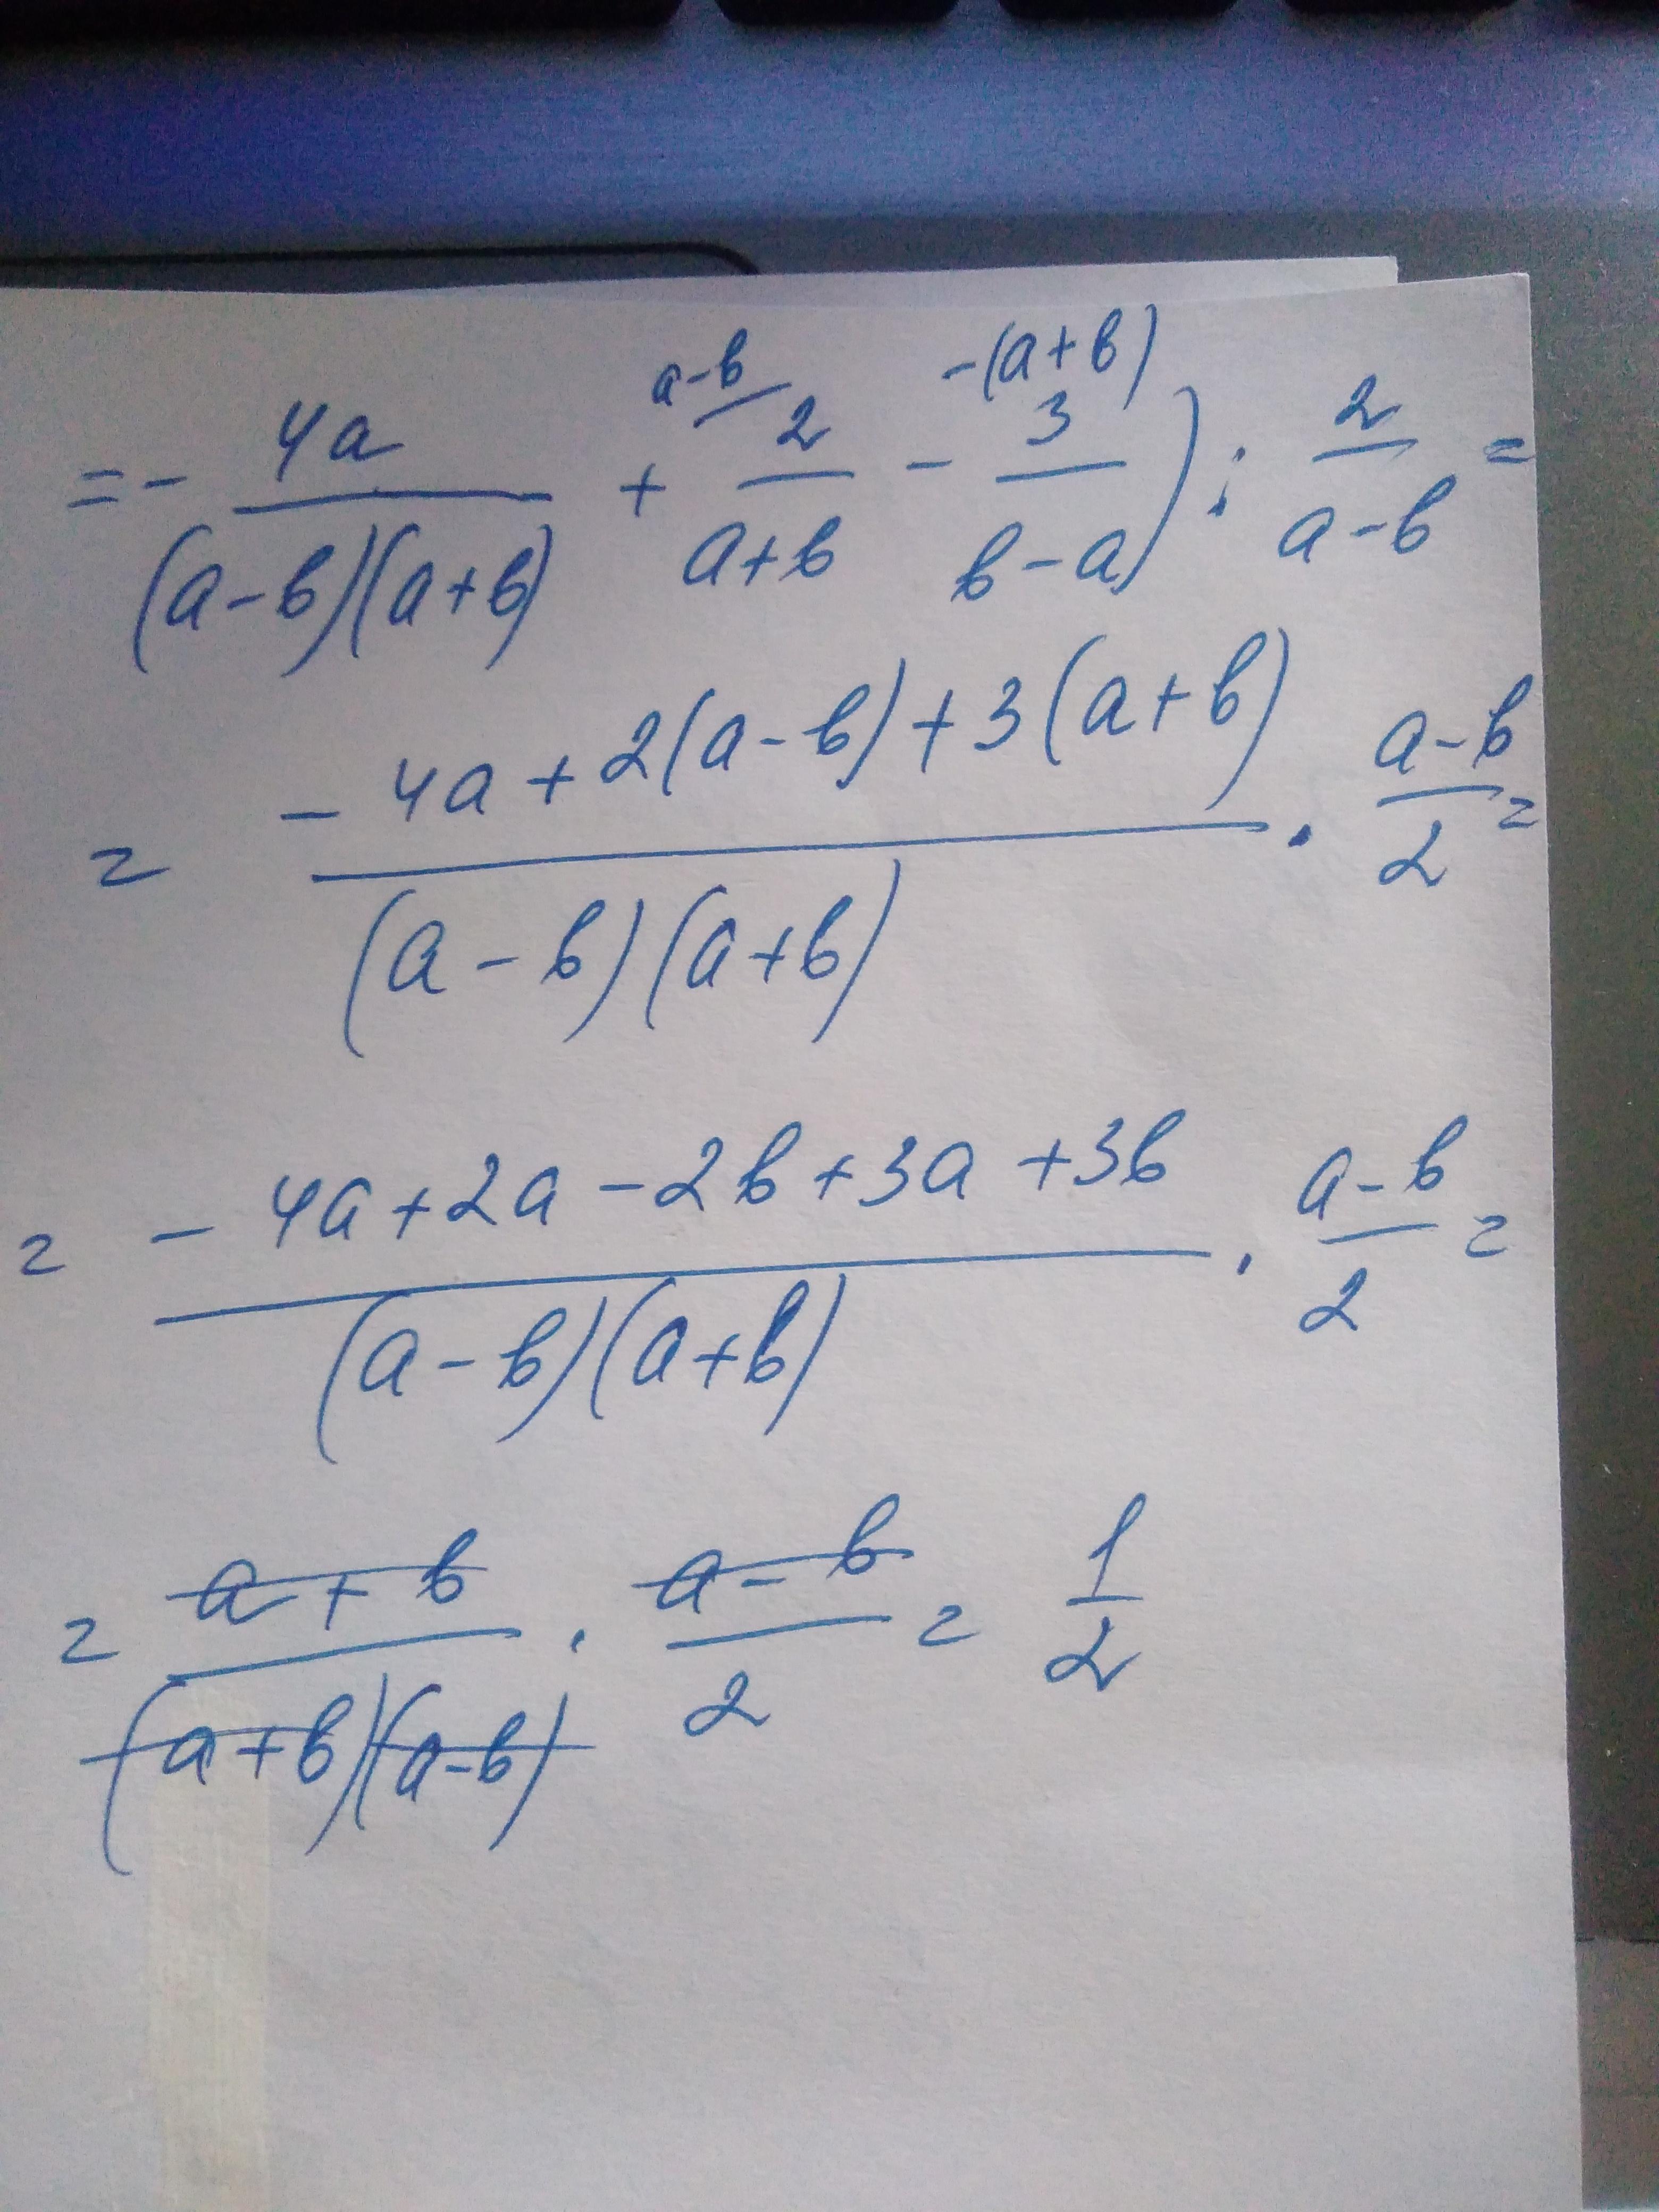 a-b -(a+b)
= - 4a/((a-b)(a+b)) + 2/(a+b) - 3/(b-a)) : 2/(a-b) =
= (-4a+2(a-b)+3(a+b))/((a-b)(a+b)) · (a-b)/2 =
= (-4a+2a-2b+3a+3b)/((a-b)(a+b)) · (a-b)/2 =
= (a+b)/((a+b)(a-b)) · (a-b)/2 = 1/2